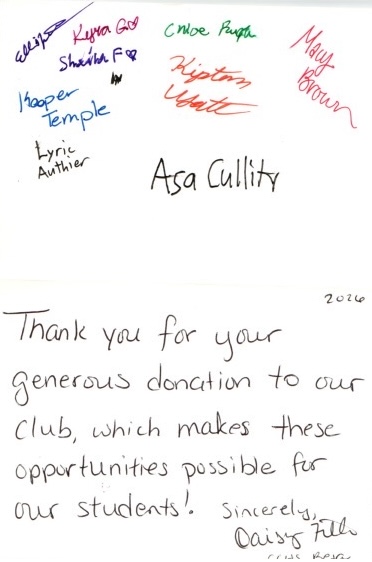 Keyra G♡
Sheisha F♡
Chloe Pugh
Macy
Brown
Kooper
Temple
Kipton
Lyric
Authier
Asa Cullity
2026
Thank you for your
generous donation to our
club, which makes these
opportunities possible for
our students! Sincerely,
Daisy